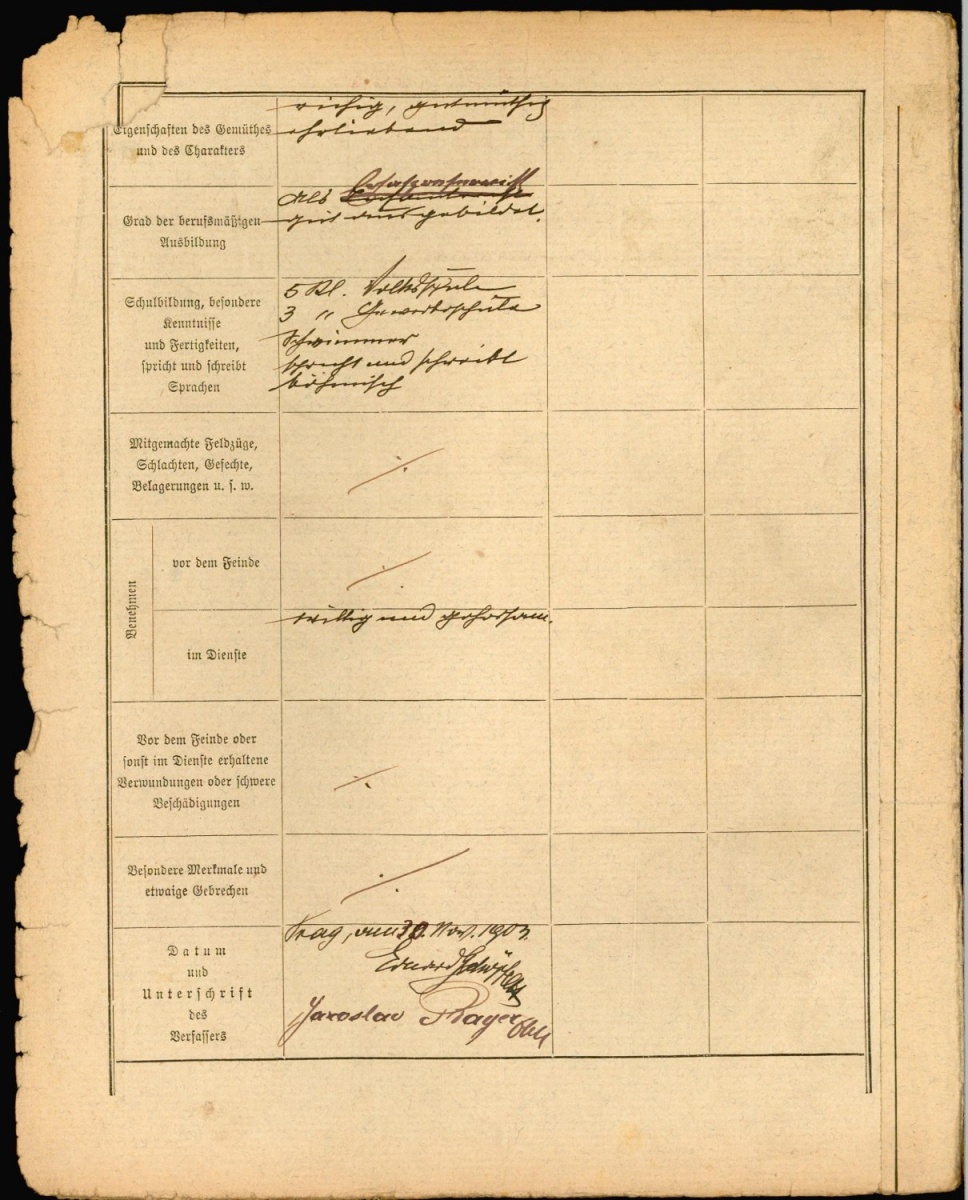 Eigenschaften des Gemüthes
und des Charakters
ruhig, gutmüthig
ehrliebend
Grad der berufsmäßigen
Ausbildung
Als Ersatzreservist
gut ausgebildet.
Schulbildung, besondere
Kenntnisse
und Fertigkeiten,
spricht und schreibt
Sprachen
5 Kl. Volksschule
3 " Gewerbeschule
Schwimmer
spricht und schreibt
böhmisch
Mitgemachte Feldzüge,
Schlachten, Gefechte,
Belagerungen u. s. w.
Benehmen
vor dem Feinde
im Dienste
willig und gehorsam.
Vor dem Feinde oder
sonst im Dienste erhaltene
Verwundungen oder schwere
Beschädigungen
Besondere Merkmale und
etwaige Gebrechen
Datum
und
Unterschrift
des
Verfassers
Prag, am 30. Nov. 1903.
Eduard
Jaroslav Bayer Oblt